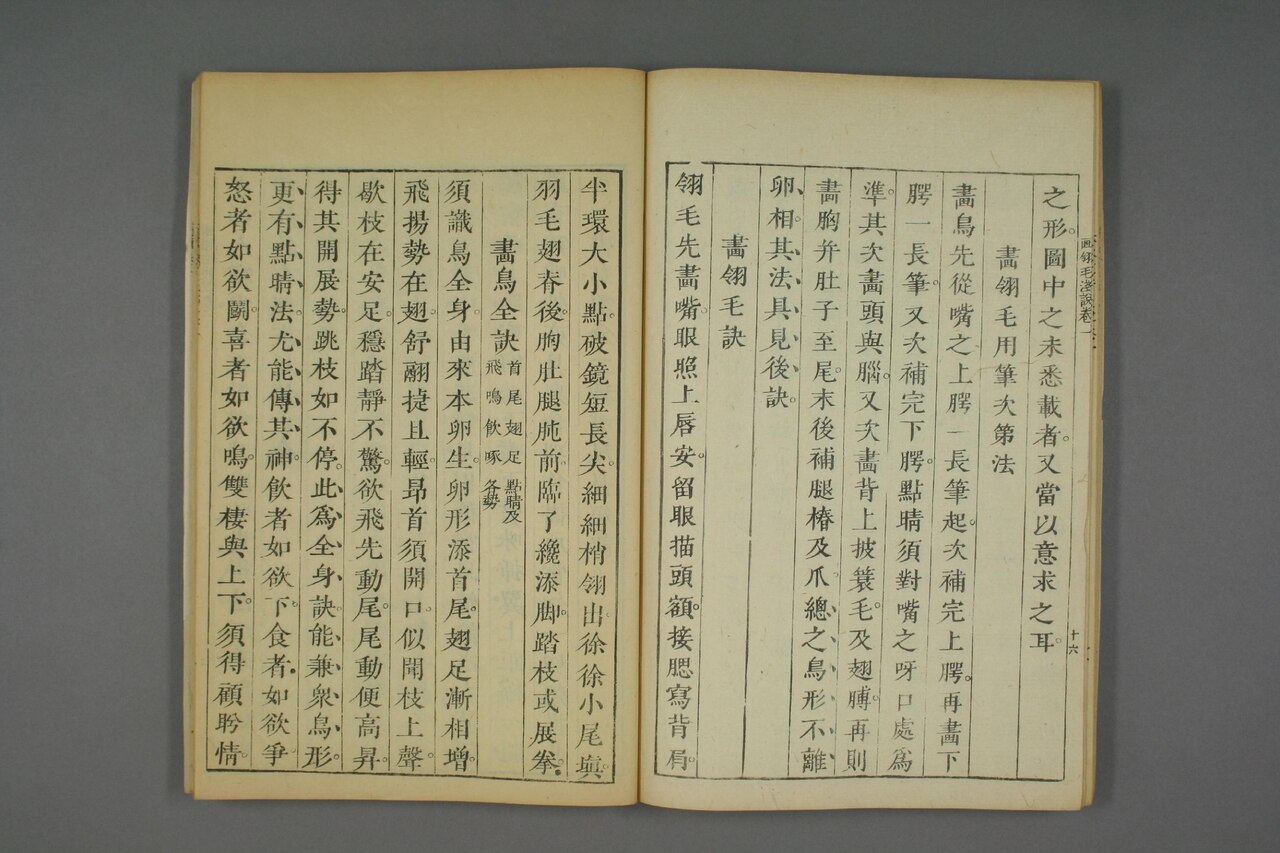 之形。圖中之未悉載者。又當以意求之耳。
畫翎毛用筆次第法
畫鳥先從嘴之上腭一長筆起。次補完上腭。再畫下
腭一長筆。又次補完下腭。點睛須對嘴之呀口處爲
準。其次畫頭與腦。又次畫背上披蓑毛。及翅膊。再則
畫胸并肚子至尾。末後補腿樁及爪。總之鳥形不離
卵相。其法具見後訣。
畫翎毛訣
翎毛先畫嘴。眼照上唇安。留眼描頭額。接腮寫背肩。
半環大小點。破鏡短長尖。細細梢翎出。徐徐小尾塡。
羽毛翅脊後。胸肚腿肫前。臨了纔添脚。踏枝或展拳。
畫鳥全訣 首尾翅足 點睛及
飛鳴飲啄 各勢
須識鳥全身。由來本卵生。卵形添首尾。翅足漸相增。
飛揚勢在翅。舒翮捷且輕。昂首須開口。似聞枝上聲。
歇枝在安足。穩踏靜不驚。欲飛先動尾。尾動便高昇。
得其開展勢。跳枝如不停。此爲全身訣。能兼衆鳥形。
更有點睛法。尤能傳其神。飲者如欲下。食者如欲爭
怒者如欲鬭。喜者如欲鳴。雙棲與上下。須得顧盻情。
十六